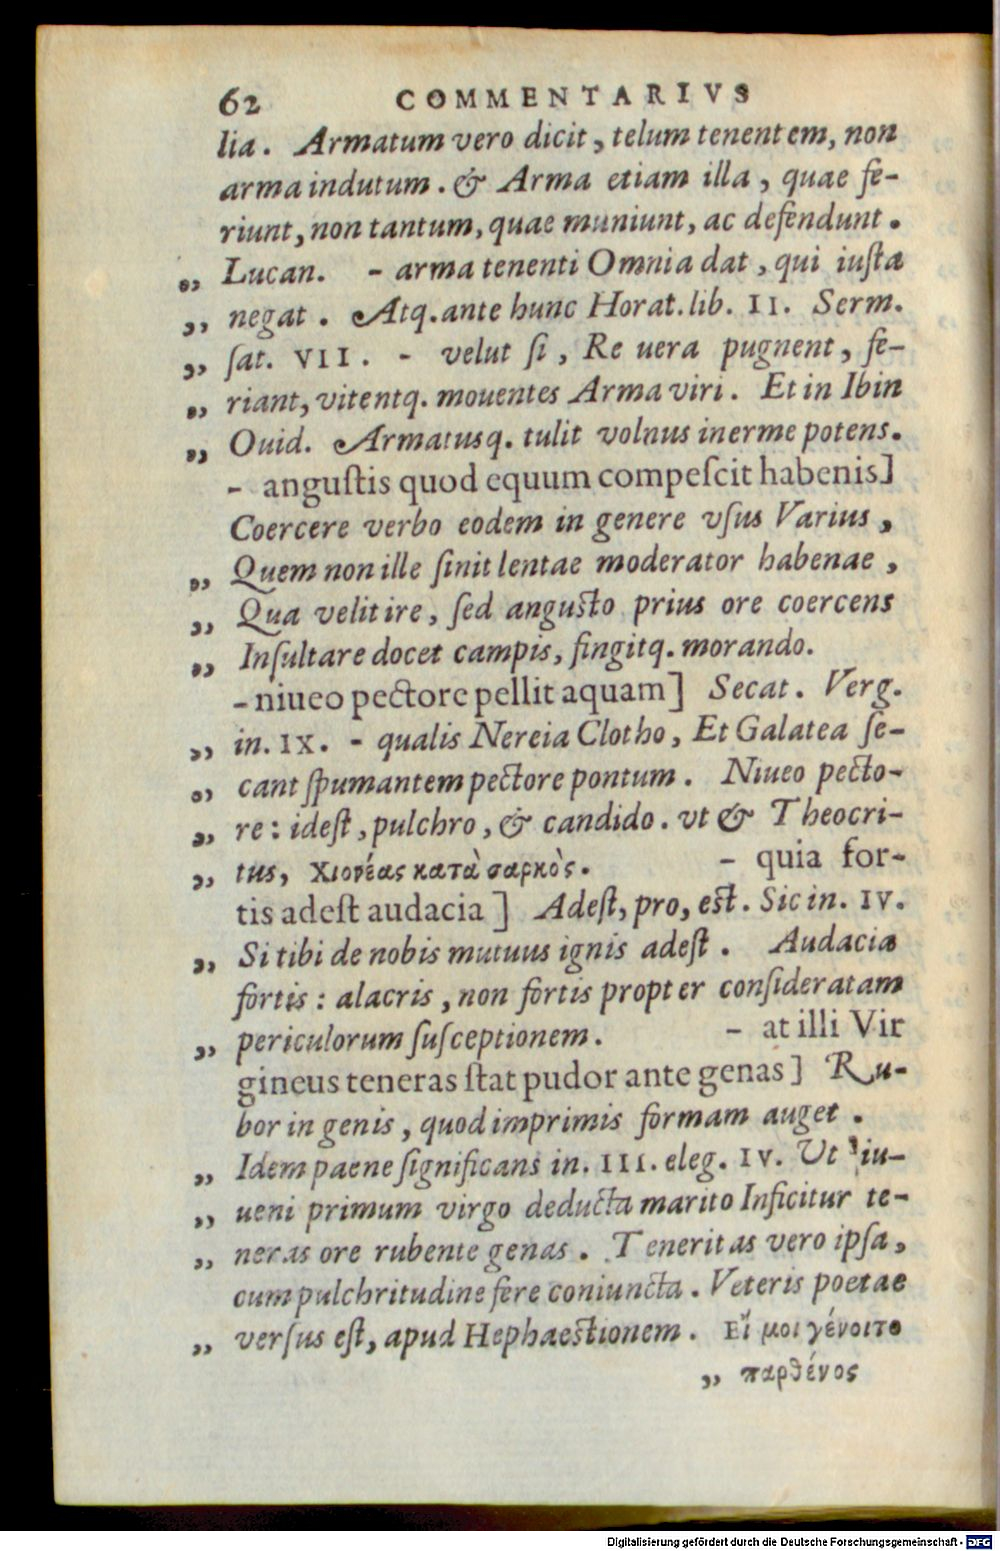 62 COMMENTARIVS
lia. Armatum vero dicit, telum tenentem, non
arma indutum. & Arma etiam illa, quae fe-
riunt, non tantum, quae muniunt, ac defendunt.
„ Lucan. - arma tenenti Omnia dat, qui iusta
„ negat. Atq. ante hunc Horat. lib. II. Serm.
„ sat. VII. - velut si, Re uera pugnent, fe-
„ riant, vitentq. mouentes Arma viri. Et in Ibin
„ Ouid. Armatusq. tulit volnus inerme potens.
- angustis quod equum compescit habenis]
Coercere verbo eodem in genere vsus Varius,
„ Quem non ille sinit lentae moderator habenae,
„ Qua velit ire, sed angusto prius ore coercens
„ Insultare docet campis, fingitq. morando.
- niueo pectore pellit aquam] Secat. Verg.
„ in. IX. - qualis Nereia Clotho, Et Galatea se-
„ cant spumantem pectore pontum. Niueo pecto-
„ re: idest, pulchro, & candido. vt & Theocri-
„ tus, Χιονέας κατὰ σαρκὸς. - quia for-
tis adest audacia] Adest, pro, est. Sic in. IV.
„ Si tibi de nobis mutuus ignis adest. Audacia
fortis: alacris, non fortis propter consideratam
„ periculorum susceptionem. - at illi Vir
gineus teneras stat pudor ante genas] Ru-
bor in genis, quod imprimis formam auget.
„ Idem paene significans in. III. eleg. IV. Ut iu-
„ ueni primum virgo deducta marito Inficitur te-
„ neras ore rubente genas. Teneritas vero ipsa,
cum pulchritudine fere coniuncta. Veteris poetae
„ versus est, apud Hephaestionem. Εἴ μοι γένοιτο
„ παρθένος
Digitalisierung gefördert durch die Deutsche Forschungsgemeinschaft - DFG